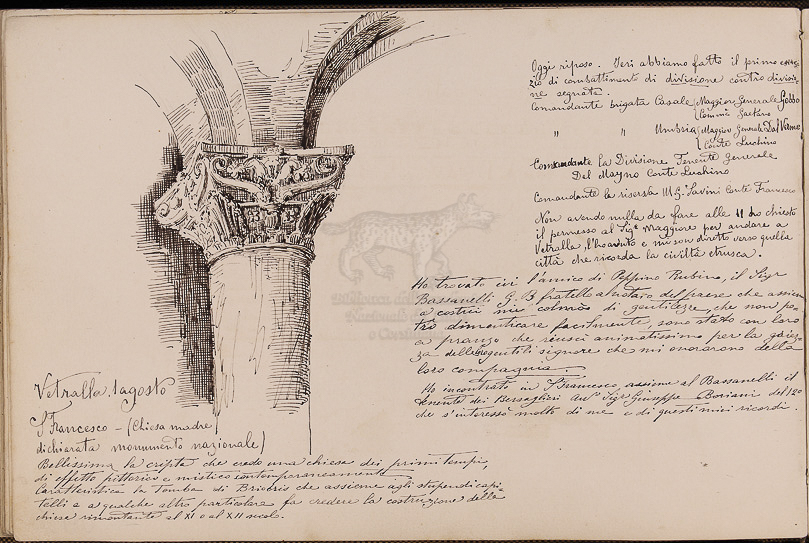 Oggi riposo. Ieri abbiamo fatto il primo eserci-
zio di combattimento di divisione contro divisio-
ne segnata.
Comandante brigata Casale { Maggior Generale Gobbo
{ Comm. Gaetano
" " Umbria { Maggior Generale Dal Verme
{ Conte Luchino
Comandante la Divisione Tenente Generale
Del Mayno Conte Luchino
Comandante la riserva M G. Savini Conte Francesco
Non avendo nulla da fare alle 11 ho chiesto
il permesso al Sigr Maggiore per andare a
Vetralla, l'ho avuto e mi son diretto verso quella
città che ricorda la civiltà etrusca.
Ho trovato ivi l'amico di Peppino Rubini, il Sigr
Bassanelli G. B fratello al notaro del paese che assiem
a costui mi colmò di gentilezze, che non po-
trò dimenticare facilmente, sono stato con loro
a pranzo che riuscì animatissimo per la gaiez-
za delle gentili signore che mi onorarono della
loro compagnia.
Ho incontrato in S. Francesco, assieme al Bassanelli il
tenente dei Bersaglieri Sigr Giuseppe Boriani del 12o
che s'interessò molto di me e di questi miei ricordi.
Vetralla. 1 agosto
S Francesco - (Chiesa madre
dichiarata monumento nazionale)
Bellissima la cripta che credo una chiesa dei primi tempi,
di effetto pittorico e mistico contemporaneamente
Caratteristica la tomba di che assieme agli stupendi capi-
telli e a qualche altro particolare fa credere la costruzione della
chiesa rimontante al XI o al XII secolo.
Biblioteca
Nazionale